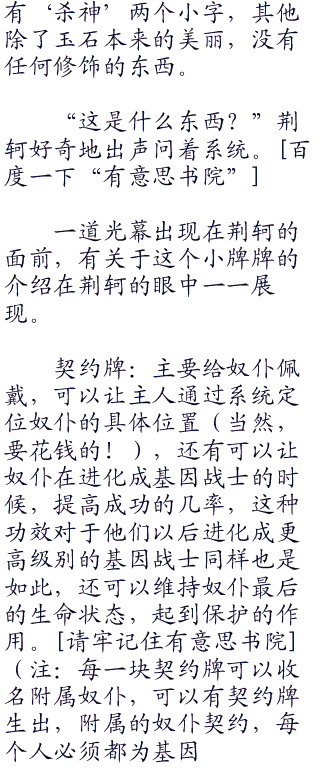 有‘杀神’两个小字，其他
除了玉石本来的美丽，没有
任何修饰的东西。
“这是什么东西？”荆
轲好奇地出声问着系统。[百
度一下“有意思书院”]
一道光幕出现在荆轲的
面前，有关于这个小牌牌的
介绍在荆轲的眼中一一展
现。
契约牌：主要给奴仆佩
戴，可以让主人通过系统定
位奴仆的具体位置（当然，
要花钱的！），还有可以让
奴仆在进化成基因战士的时
候，提高成功的几率，这种
功效对于他们以后进化成更
高级别的基因战士同样也是
如此，还可以维持奴仆最后
的生命状态，起到保护的作
用。[请牢记住有意思书院]
（注：每一块契约牌可以收
名附属奴仆，可以有契约牌
生出，附属的奴仆契约，每
个人必须都为基因